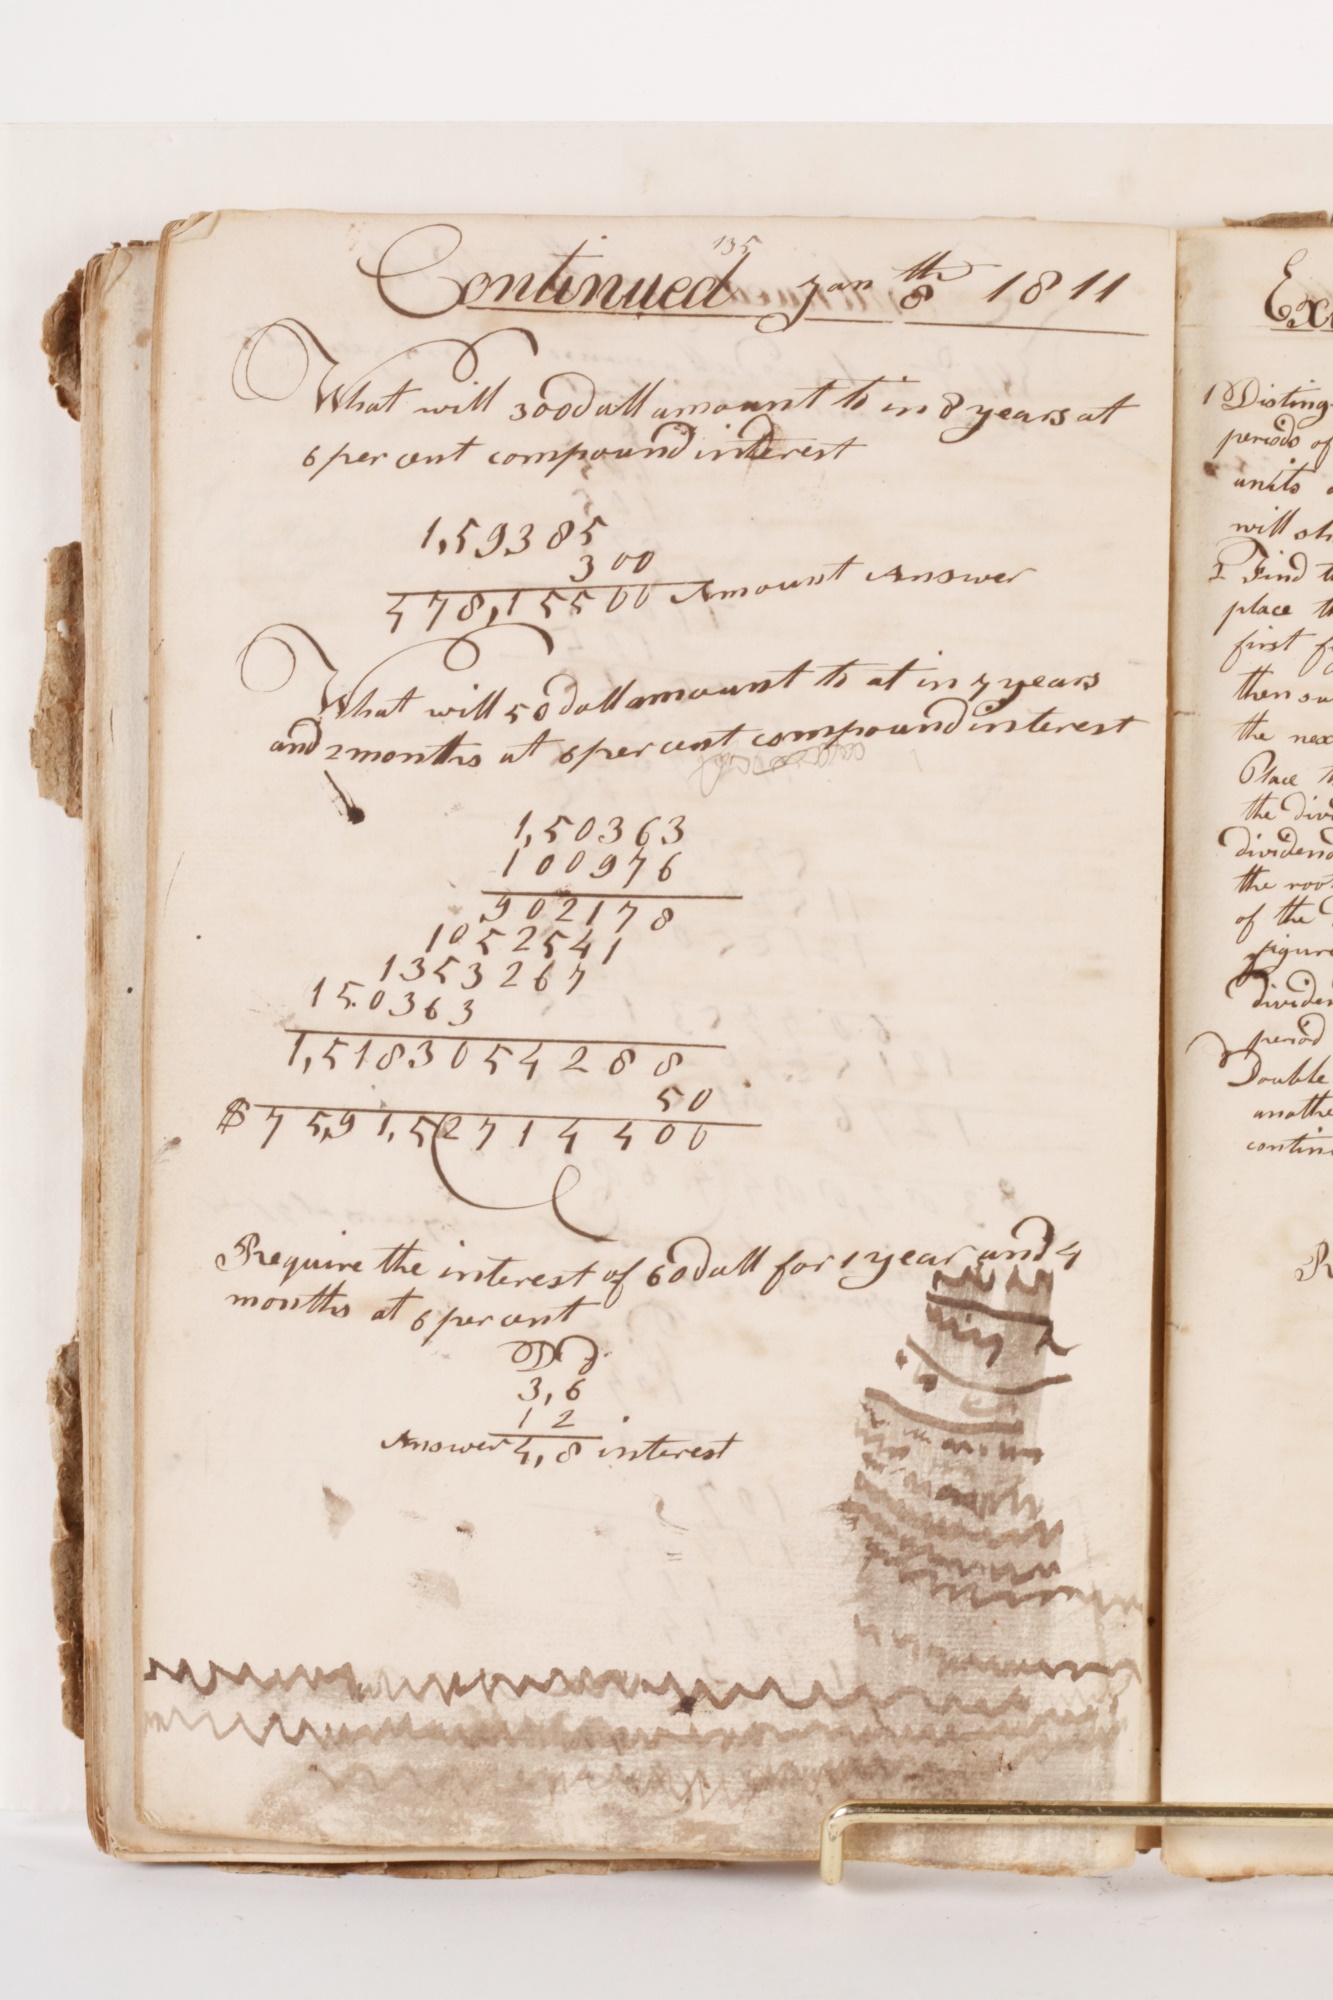 135
Continued Jan 8th 1811
What will 300 doll amount to in 8 years at
6 per cent compound interest
1,59385
300
478,15500 Amount Answer
What will 50 doll amount to at in 7 years
and 2 months at 6 per cent compound interest
1,50363
100976
902178
1052541
1353267
150363
1,5183054288
50
$ 75,91,52714400
Require the interest of 60 doll for 1 year and 4
months at 6 per cent
D d
3,6
12
Answer 4,8 interest
1 Disting
periods of
units
will sh
2 Find t
place th
first f
then su
the nex
Place t
the div
dividend
the root
of the
figure
dividen
period
Double
anothe
contin